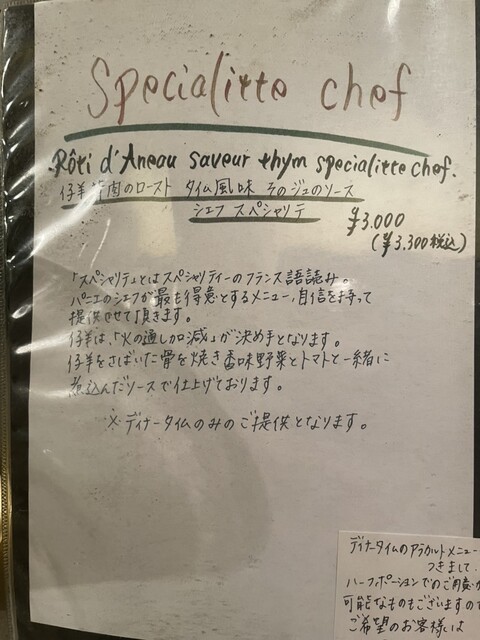 Specialitte chef
Rôti d'Aneau saveur thym specialitte chef.
仔羊背肉のロースト タイム風味 そのジュのソース
シェフ スペシャリテ
¥3.000
(¥3.300税込)
「スペシャリテ」とはスペシャリティーのフランス語読み。
パニエのシェフが最も得意とするメニュー、自信を持って
提供させて頂きます。
仔羊は、「火の通し加減」が決め手となります。
仔羊をさばいた骨を焼き香味野菜とトマトと一緒に
煮込んだソースで仕上げております。
※ディナータイムのみのご提供となります。
ディナータイムのアラカルトメニュー
つきまして、
ハーフポーションでのご用意が
可能なものもございますので
ご希望のお客様は